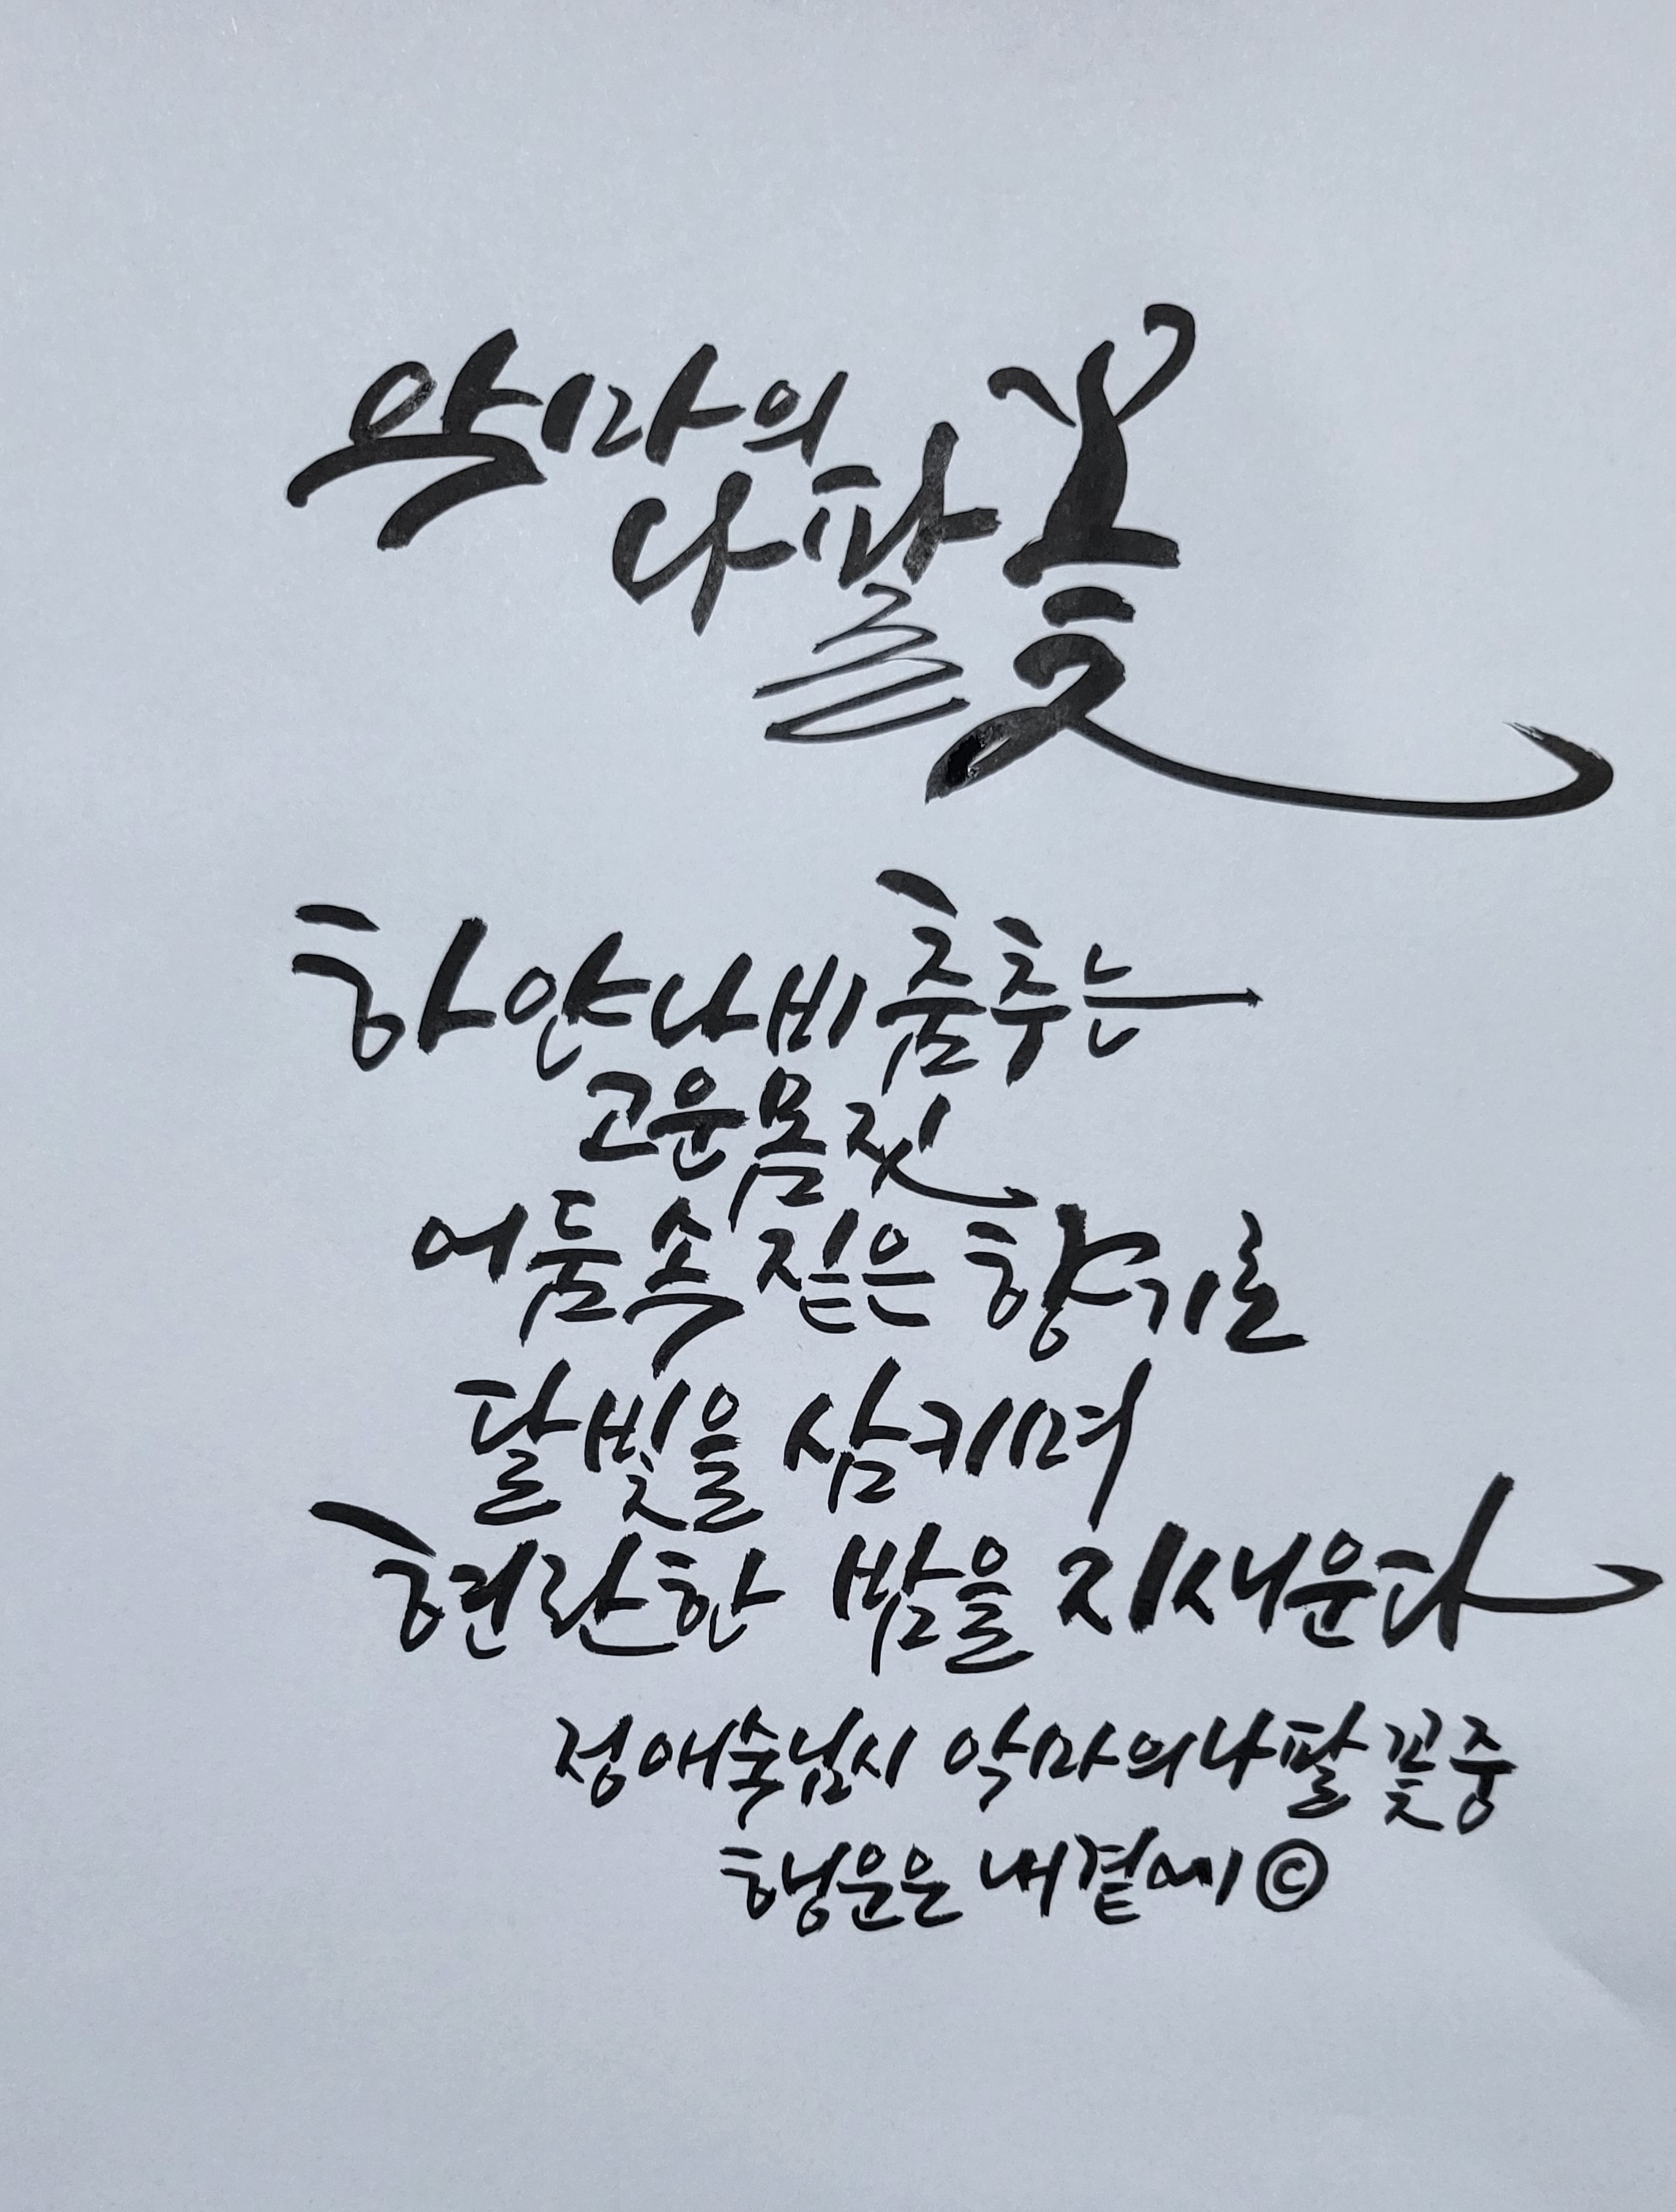 악마의
나팔꽃
하얀 나비 춤추는
고운 몸짓
어둠 속 짙은 향기로
달빛을 삼키며
현란한 밤을 지새운다
정애숙님시 악마의 나팔꽃 중
행운은 내곁에 ©